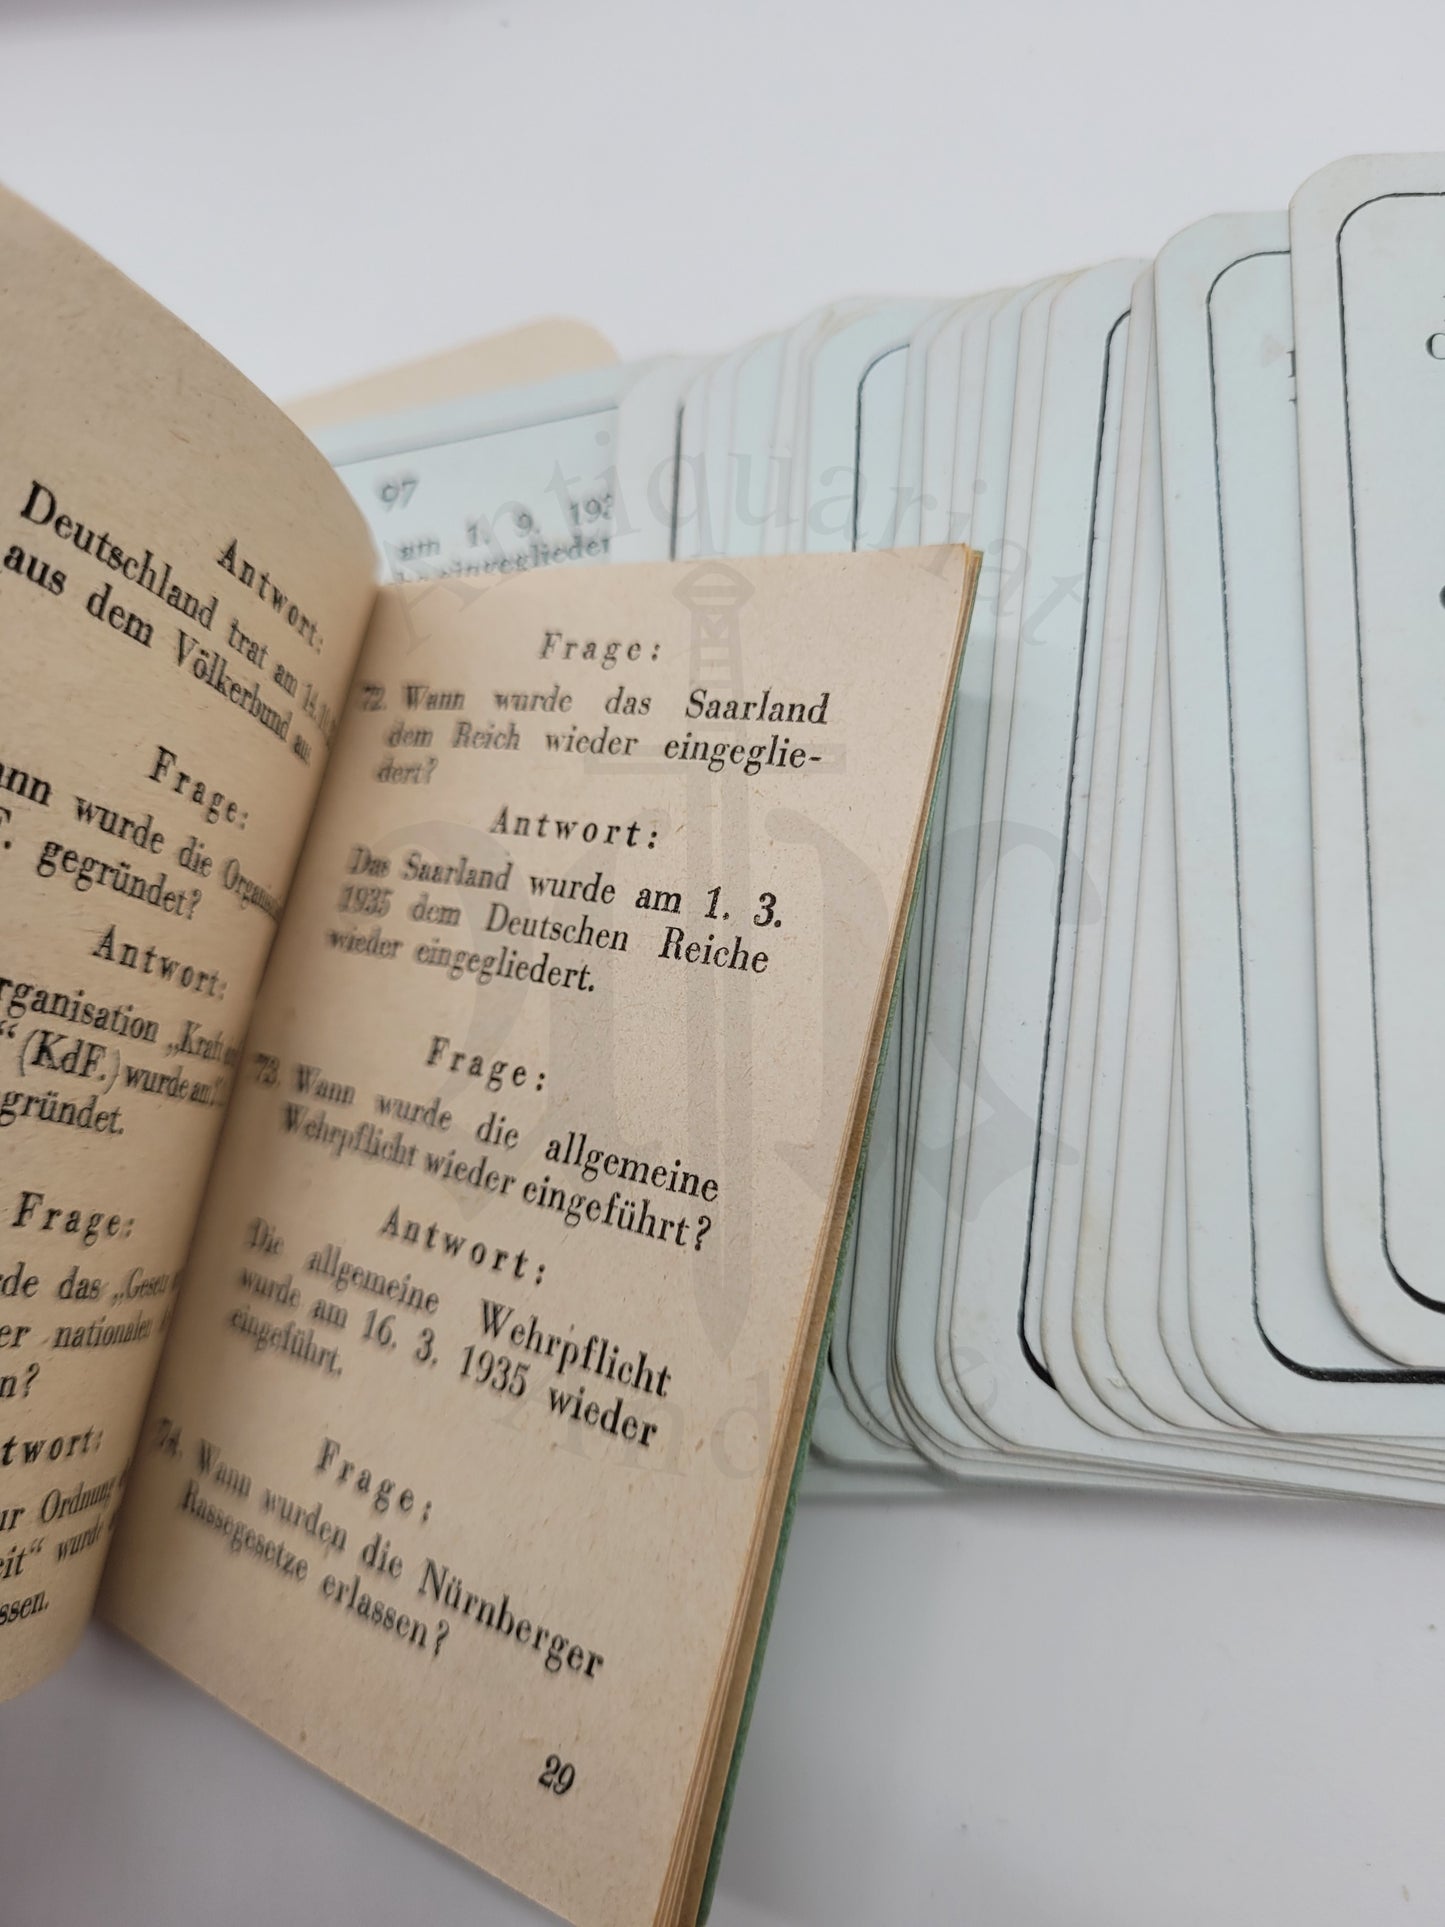 Antwort:
Deutschland trat am 14.10.
aus dem Völkerbund aus.
Frage:
wurde die
gegründet?
Antwort:
„Kraft
“ (KdF.) wurde am
gründet.
Frage:
das „Gesetz
nationalen
n?
twort:
ur Ordnung
eit“ wurde
ssen.
Frage:
72. Wann wurde das Saarland
dem Reich wieder eingeglie-
dert?
Antwort:
Das Saarland wurde am 1. 3.
1935 dem Deutschen Reiche
wieder eingegliedert.
Frage:
73. Wann wurde die allgemeine
Wehrpflicht wieder eingeführt?
Antwort:
Die allgemeine Wehrpflicht
wurde am 16. 3. 1935 wieder
eingeführt.
Frage:
74. Wann wurden die Nürnberger
Rassegesetze erlassen?
29
97
am 1. 9. 193
Antiquariat
Andree